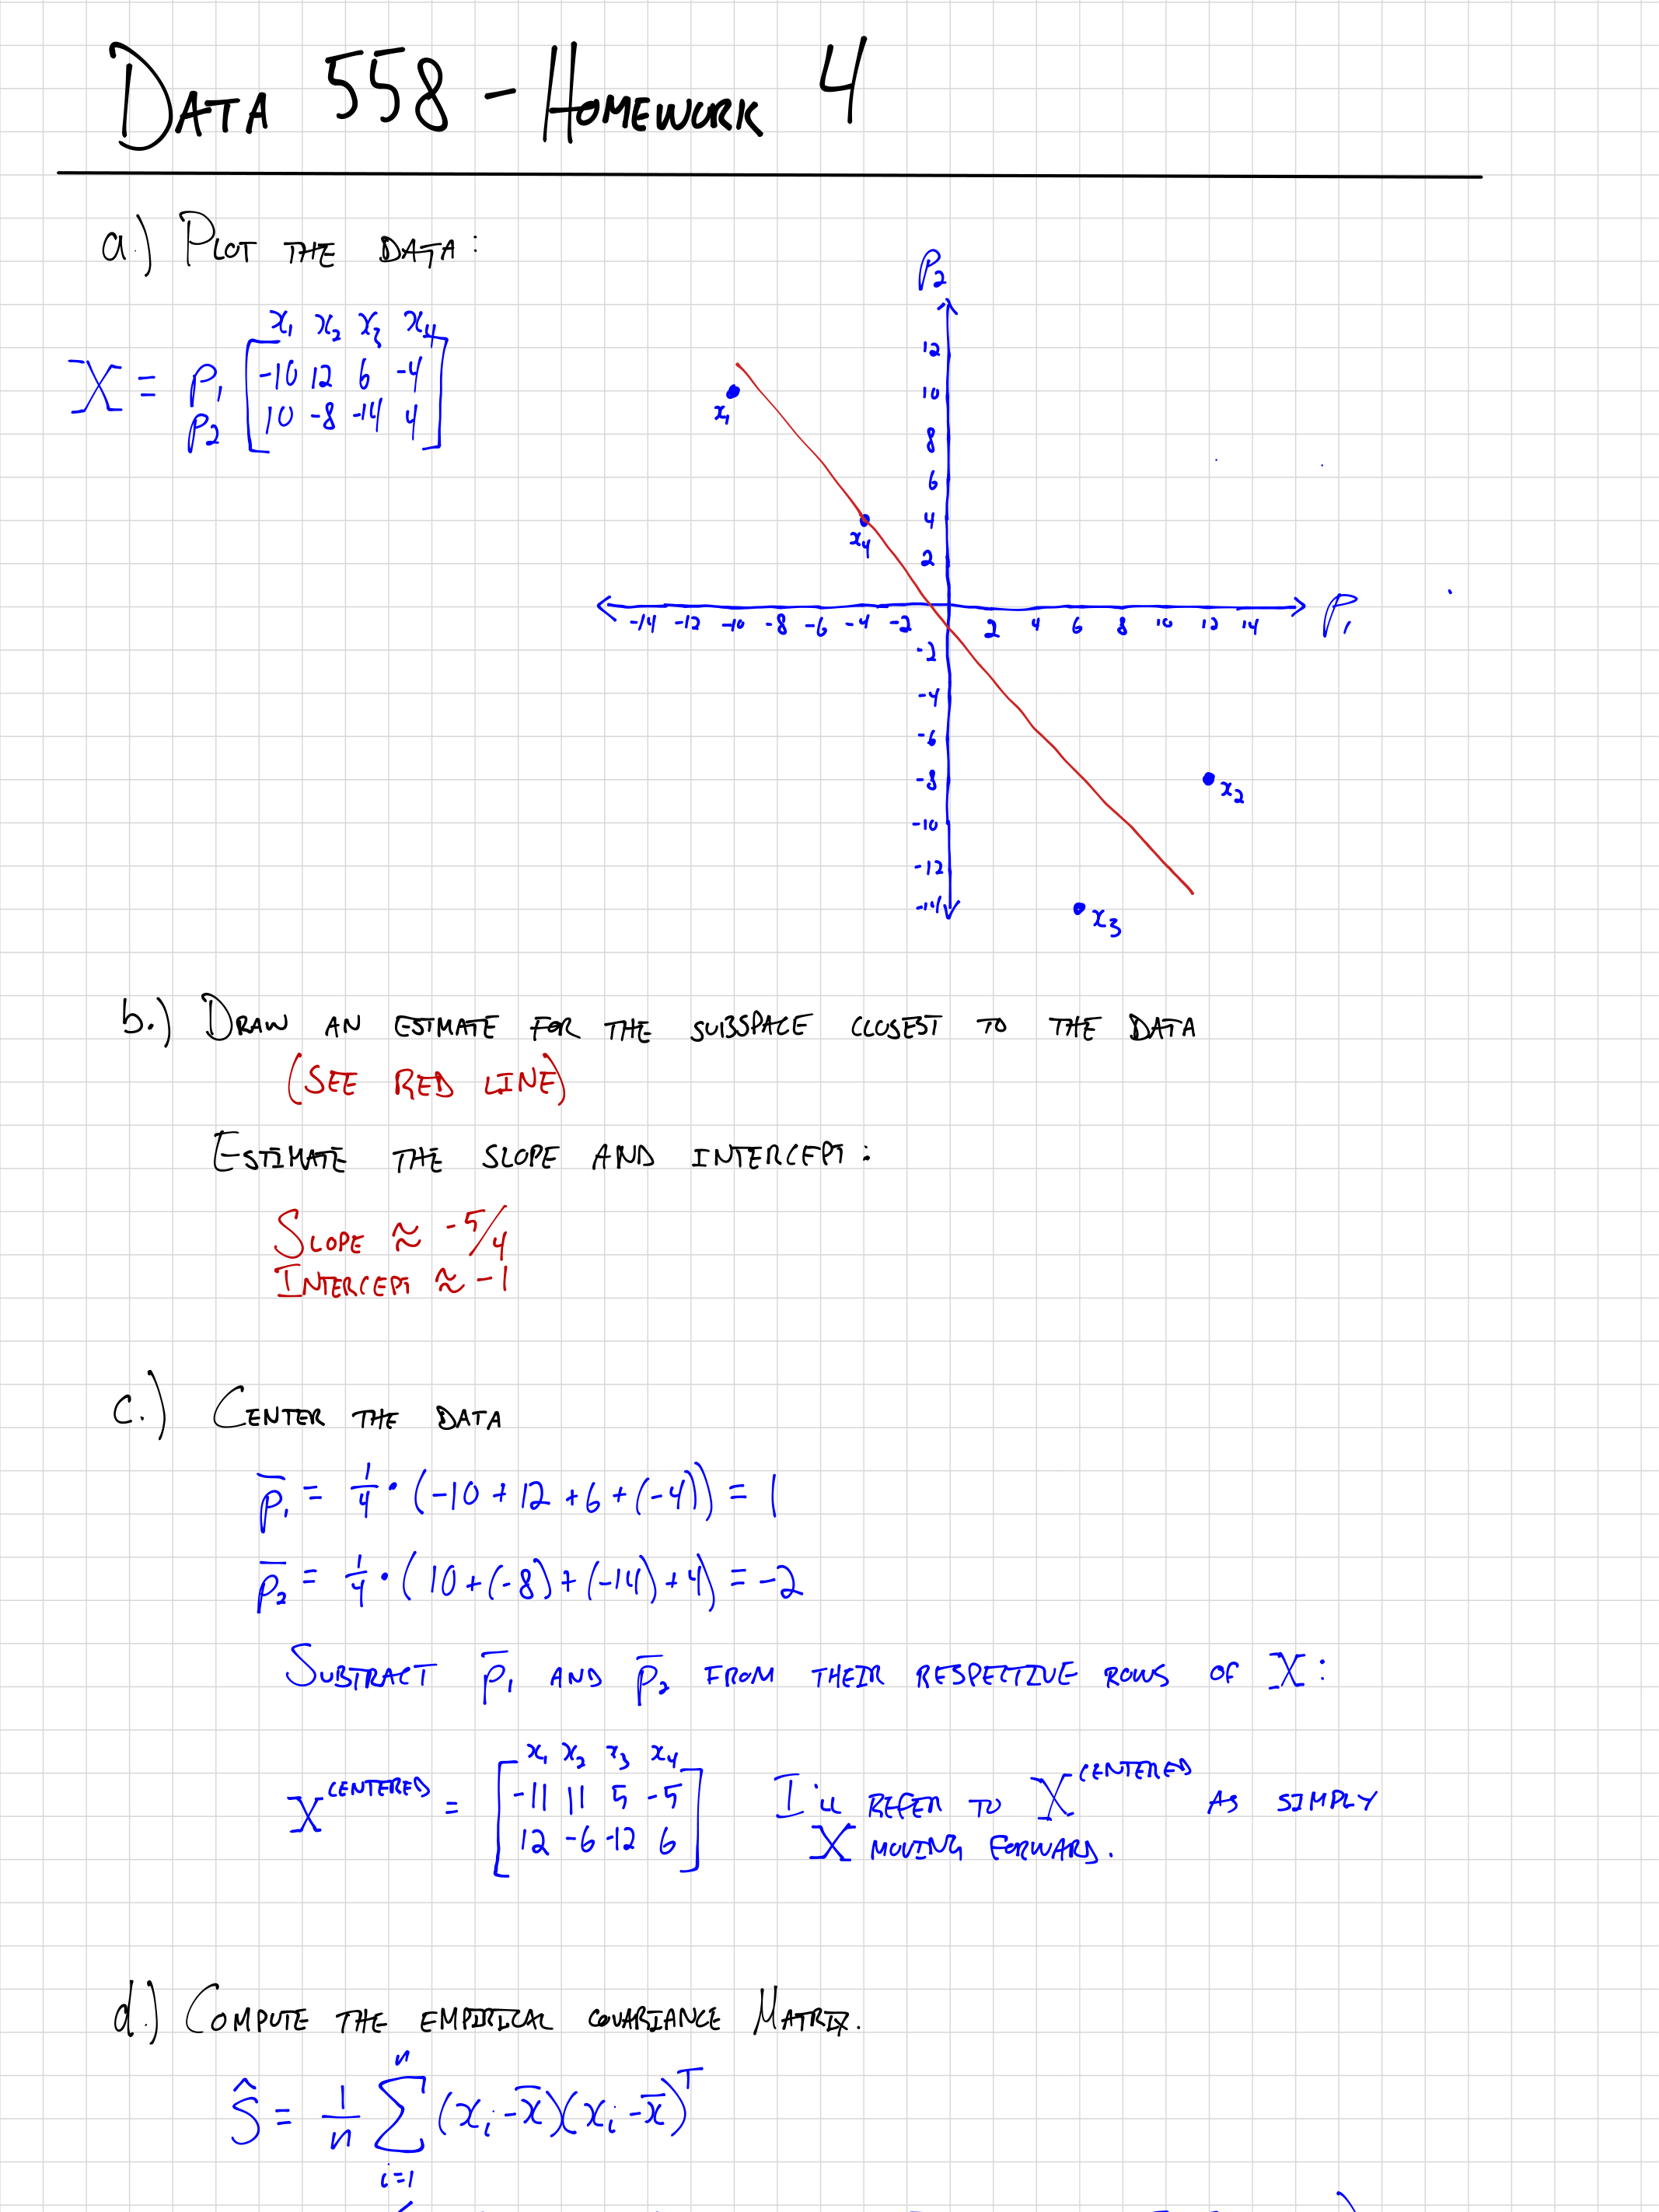 DATA 558 - HOMEWORK 4
a.) PLOT THE DATA:
P₂
x₁ x₂ x₃ x₄
X = P₁ [-10 12 6 -4]
P₂ [10 -8 -14 4]
12
10
x₁
8
6
4
x₄
2
-14 -12 -10 -8 -6 -4 -2 2 4 6 8 10 12 14 P₁
-2
-4
-6
-8
x₂
-10
-12
-14
x₃
b.) DRAW AN ESTIMATE FOR THE SUBSPACE CLOSEST TO THE DATA
(SEE RED LINE)
ESTIMATE THE SLOPE AND INTERCEPT:
SLOPE ≈ -5/4
INTERCEPT ≈ -1
c.) CENTER THE DATA
p̄₁ = 1/4 · (-10 + 12 + 6 + (-4)) = 1
p̄₂ = 1/4 · (10 + (-8) + (-14) + 4) = -2
SUBTRACT p̄₁ AND p̄₂ FROM THEIR RESPECTIVE ROWS OF X:
x₁ x₂ x₃ x₄
X^CENTERED = [-11 11 5 -5]
[12 -6 -12 6]
I'LL REFER TO X^CENTERED AS SIMPLY
X MOVING FORWARD.
d.) COMPUTE THE EMPIRICAL COVARIANCE MATRIX.
Ŝ = 1/n ∑ⁿᵢ₌₁ (xᵢ - x̄)(xᵢ - x̄)ᵀ